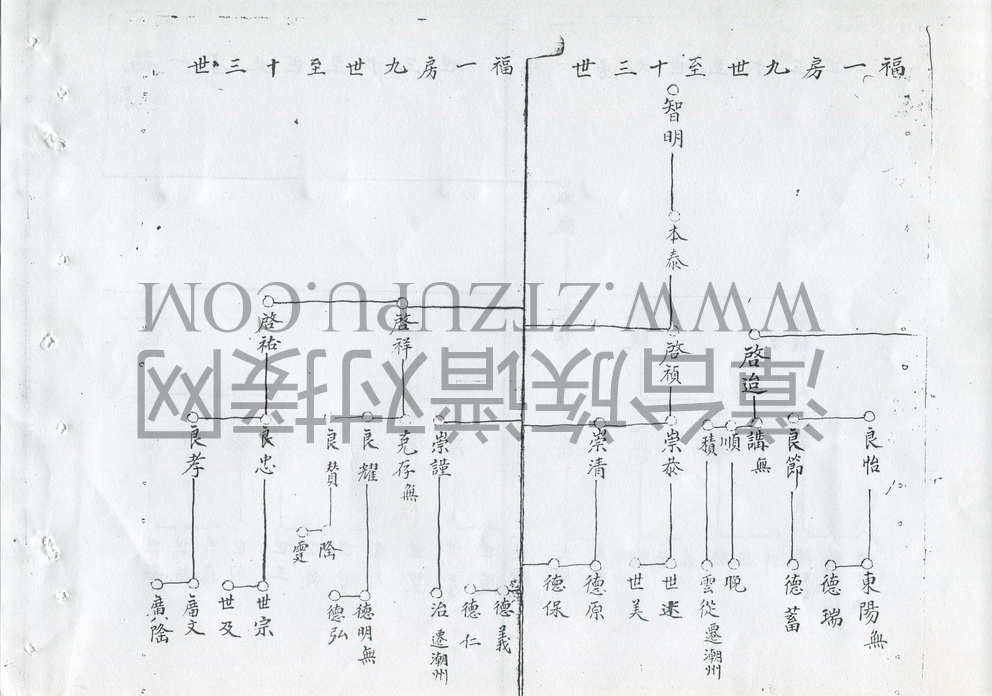 福一房九世至十三世
智明
本泰
啓迨
啓禎
良怡
良節
講無
順
積
崇恭
崇清
東陽無
德瑞
德蓄
晚
雲從遷潮州
世速
世美
德原
德保
福一房九世至十三世
啓祥
啓祐
崇謹
克存無
良耀
良贊
良忠
良孝
德義
德仁
治遷潮州
德明無
德弘
陰
靈
世宗
世及
廣文
廣陰
WWW.ZTZUPU.COM
漳台族谱对接网